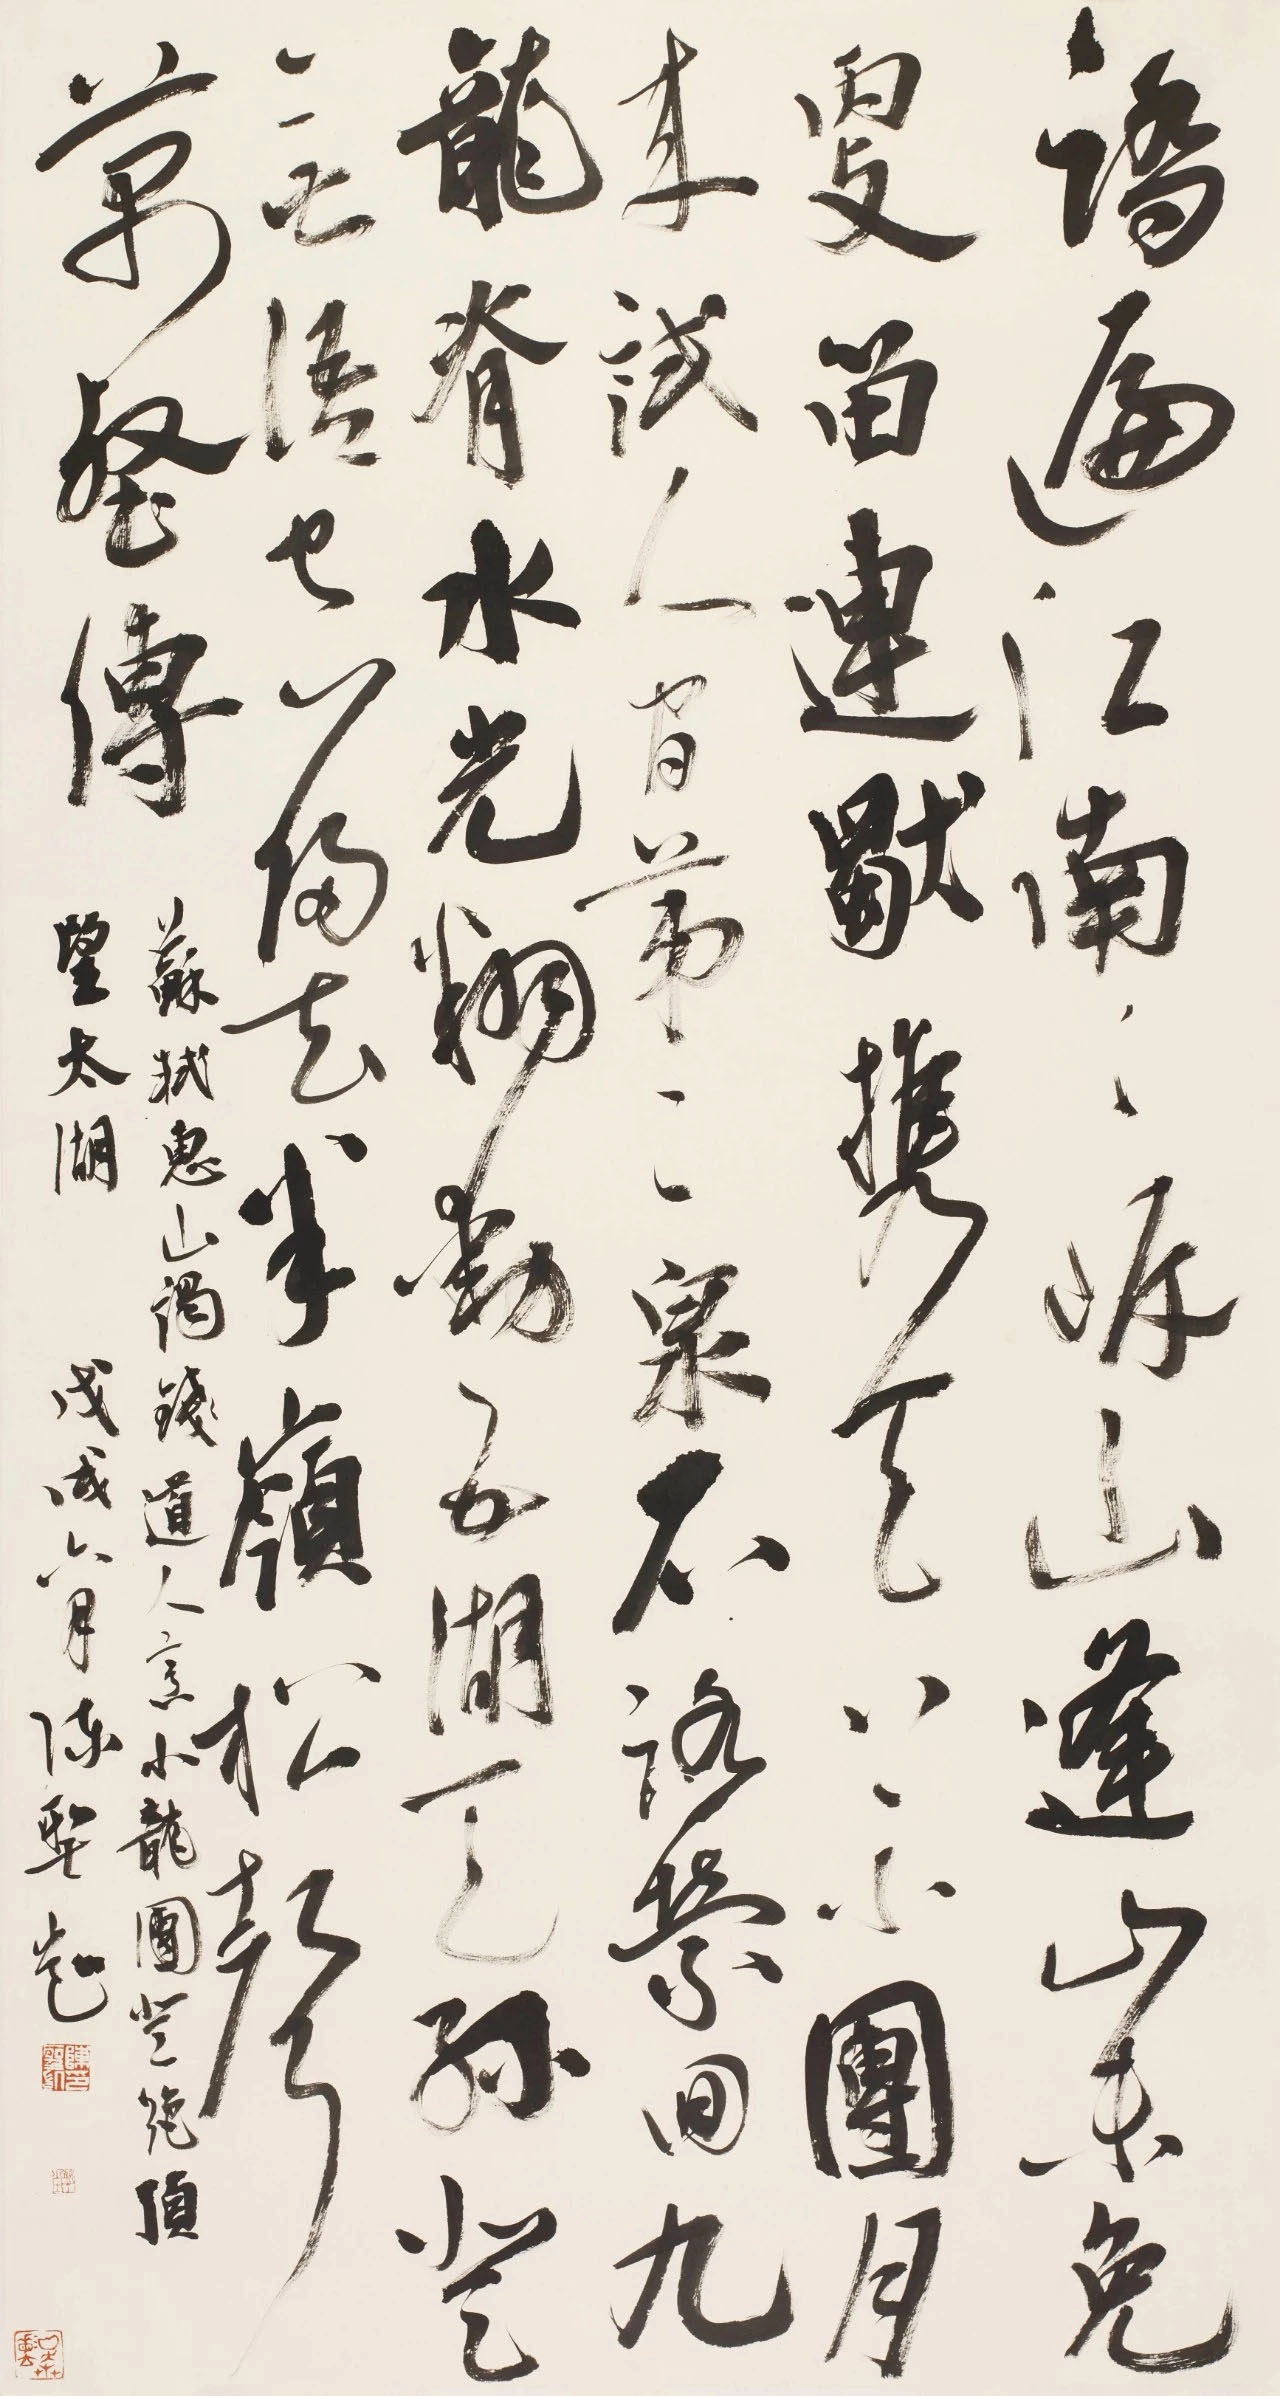 踏遍江南々岸山逢山未免
更留連獨携天上小團月
来試人間第二泉石路縈回九
龍脊水光翻動五湖天孫登
無語空歸去半嶺松聲
萬壑傳
蘇軾惠山謁錢道人烹小龍團登絕頂
望太湖 戊戌六月陳